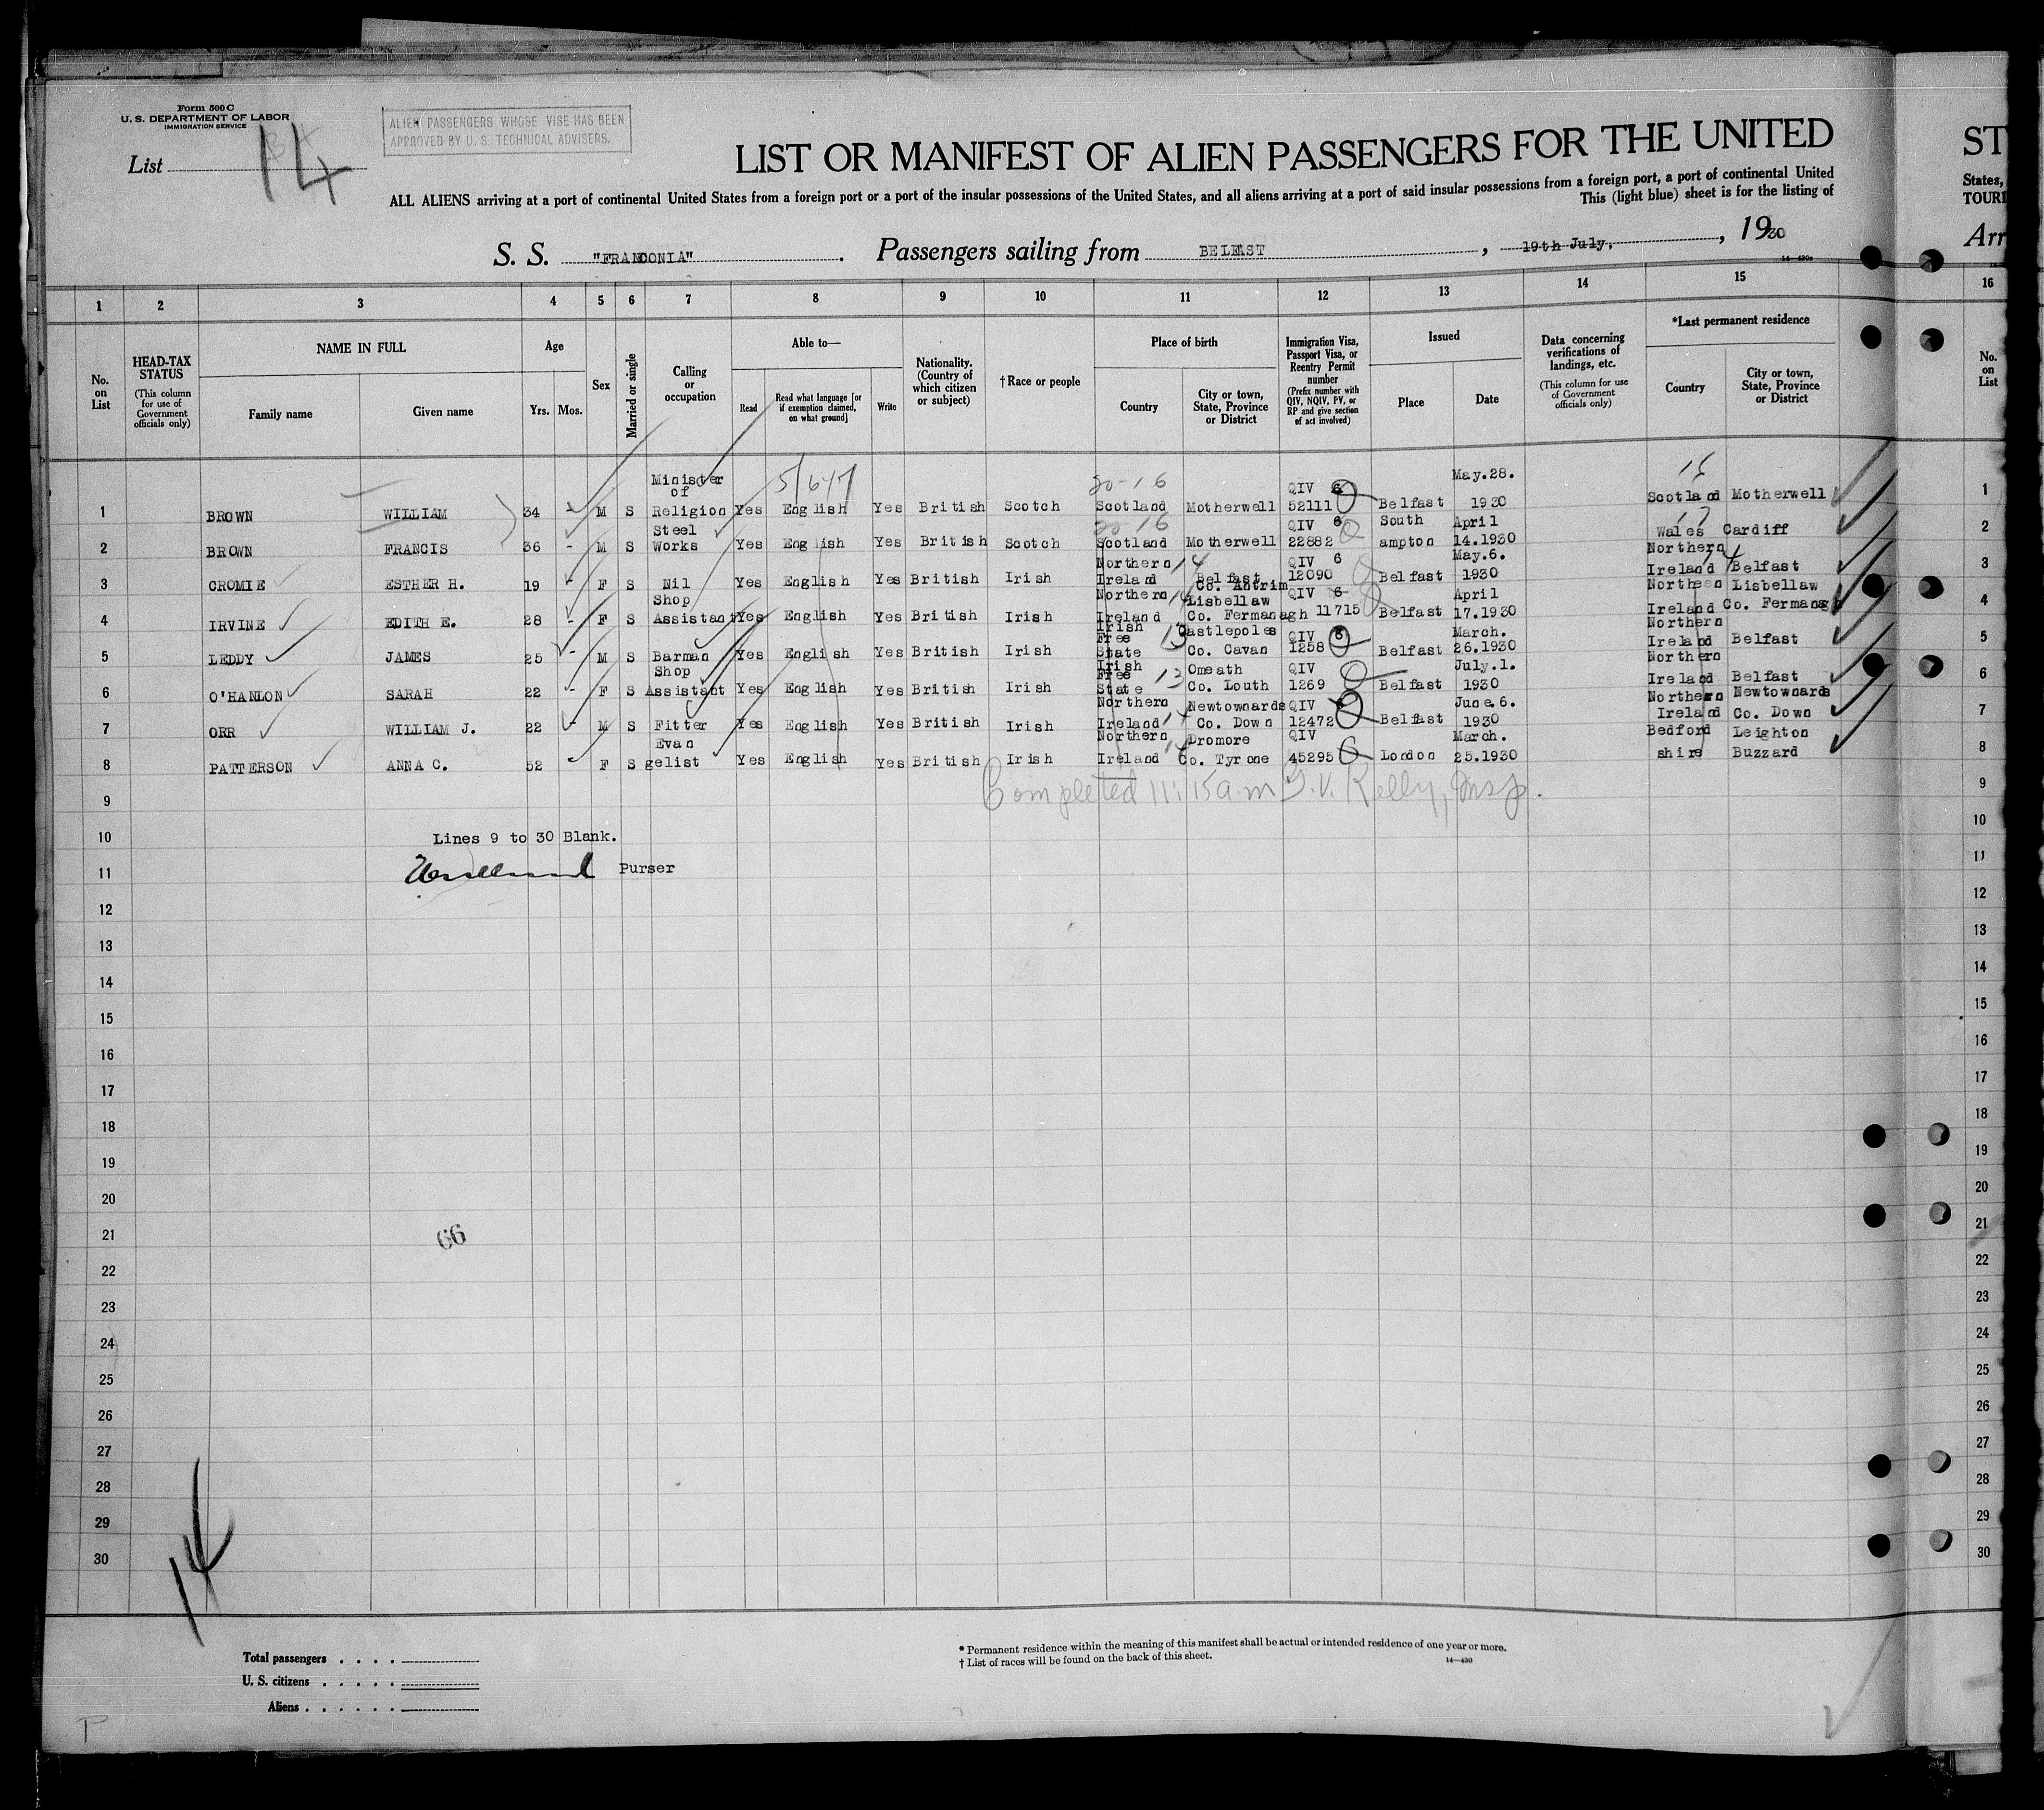 Form 500 C
U. S. DEPARTMENT OF LABOR
IMMIGRATION SERVICE
List 14
ALIEN PASSENGERS WHOSE VISE HAS BEEN
APPROVED BY U. S. TECHNICAL ADVISERS.
LIST OR MANIFEST OF ALIEN PASSENGERS FOR THE UNITED
ALL ALIENS arriving at a port of continental United States from a foreign port or a port of the insular possessions of the United States, and all aliens arriving at a port of said insular possessions from a foreign port, a port of continental United
This (light blue) sheet is for the listing of
S. S. "FRANCONIA". Passengers sailing from BELFAST, 19th July, 1930
ST
States,
TOURI
Arr
1 2 3 4 5 6 7 8 9 10 11 12 13 14 15 16
No. on List
HEAD-TAX STATUS (This column for use of Government officials only)
NAME IN FULL Family name Given name
Age Yrs. Mos.
Sex
Married or single
Calling or occupation
Able to— Read Read what language [or if exemption claimed, on what ground] Write
Nationality. (Country of which citizen or subject)
† Race or people
Place of birth Country City or town, State, Province or District
Immigration Visa, Passport Visa, or Reentry Permit number (Prefix number with QIV, NQIV, PV, or RP and give section of act involved)
Issued Place Date
Data concerning verifications of landings, etc. (This column for use of Government officials only)
*Last permanent residence Country City or town, State, Province or District
No. on List
1 BROWN WILLIAM 34 - M S Minister of Religion Yes English Yes British Scotch Scotland Motherwell QIV 6 52111 Belfast May.28. 1930 Scotland Motherwell 1
2 BROWN FRANCIS 36 - M S Steel Works Yes English Yes British Scotch Scotland Motherwell QIV 6 22882 South ampton April 14.1930 Wales Cardiff 2
3 CROMIE ESTHER H. 19 - F S Nil Yes English Yes British Irish Northern Ireland Belfast Co. Antrim QIV 6 12090 Belfast May.6. 1930 Northern Ireland Belfast 3
4 IRVINE EDITH E. 28 - F S Shop Assistant Yes English Yes British Irish Northern Ireland Lisbellaw Co. Fermanagh QIV 6 11715 Belfast April 17.1930 Northern Ireland Lisbellaw Co. Fermanagh 4
5 LEDDY JAMES 25 M S Barman Yes English Yes British Irish Irish Free State Castlepoles Co. Cavan QIV 6 1258 Belfast March. 26.1930 Northern Ireland Belfast 5
6 O'HANLON SARAH 22 - F S Shop Assistant Yes English Yes British Irish Irish Free State Omeath Co. Louth QIV 1269 Belfast July.1. 1930 Northern Ireland Belfast 6
7 ORR WILLIAM J. 22 - M S Fitter Yes English Yes British Irish Northern Ireland Newtownards Co. Down QIV 12472 Belfast June.6. 1930 Northern Ireland Newtownards Co. Down 7
8 PATTERSON ANNA C. 52 - F S Evan gelist Yes English Yes British Irish Northern Ireland Dromore Co. Tyrone QIV 45295 London March. 25.1930 Bedford shire Leighton Buzzard 8
9 Completed 11:15 a.m. Kelly, Insp. 9
10 Lines 9 to 30 Blank. 10
11 Purser 11
12 12
13 13
14 14
15 15
16 16
17 17
18 18
19 19
20 20
21 66 21
22 22
23 23
24 24
25 25
26 26
27 27
28 28
29 29
30 30
14
Total passengers . . . .
U. S. citizens . . . . .
Aliens . . . . . .
* Permanent residence within the meaning of this manifest shall be actual or intended residence of one year or more.
† List of races will be found on the back of this sheet.
14—430
P